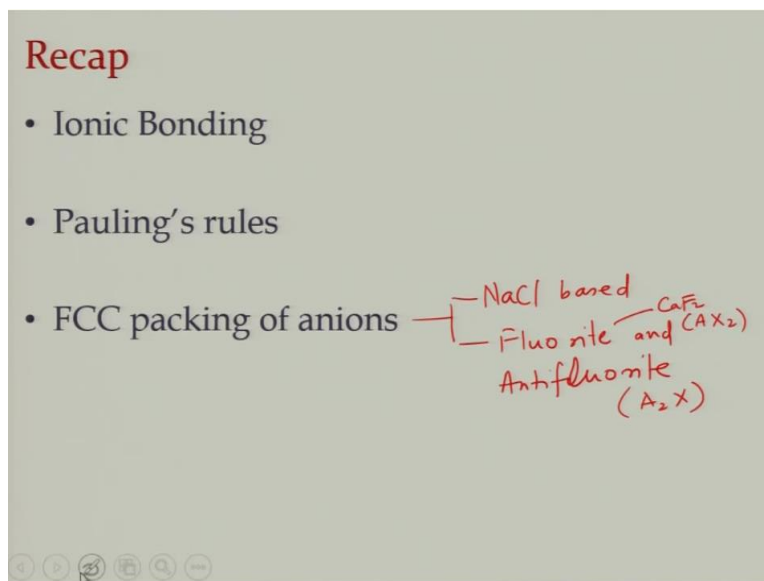 Recap
• Ionic Bonding
• Pauling's rules
• FCC packing of anions
NaCl based
CaF₂
Fluorite and (AX₂)
Antifluorite
(A₂X)